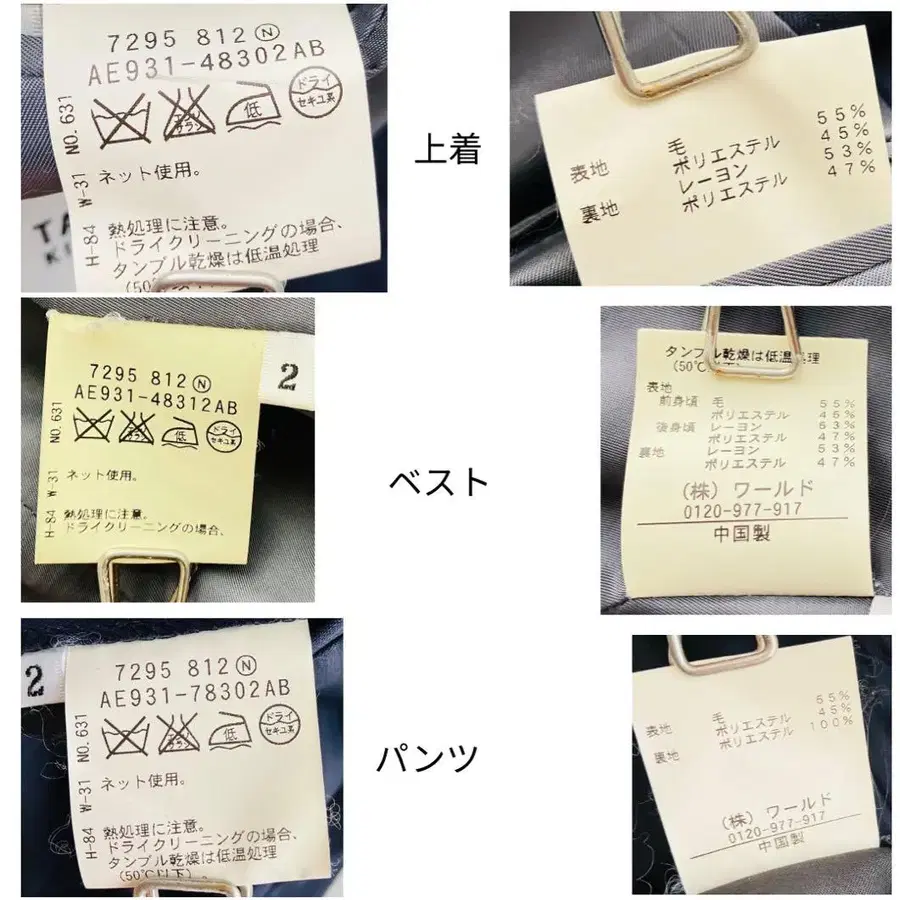 7295 812 Ⓝ
AE931-48302AB
エンソサラシ
低
ドライ
セキユ系
NO. 631
W-31
H-84
ネット使用。
熱処理に注意。
ドライクリーニングの場合、
タンブル乾燥は低温処理
(50
TA
K
上着
表地 毛 55%
ポリエステル 45%
裏地 レーヨン 53%
ポリエステル 47%
7295 812 Ⓝ
AE931-48312AB
低
ドライ
セキユ系
NO. 631
W-31
H-84
ネット使用。
熱処理に注意。
ドライクリーニングの場合、
2
ベスト
タンブル乾燥は低温処理
(50℃
表地
前身頃 毛 55%
ポリエステル 45%
後身頃 レーヨン 53%
ポリエステル 47%
裏地 レーヨン 53%
ポリエステル 47%
(株) ワールド
0120-977-917
中国製
2
7295 812 Ⓝ
AE931-78302AB
低
ドライ
セキユ系
NO. 631
W-31
H-84
ネット使用。
熱処理に注意。
ドライクリーニングの場合、
タンブル乾燥は低温処理
(50℃以下)。
パンツ
表地 毛 55%
ポリエステル 45%
裏地 ポリエステル 100%
(株) ワールド
0120-977-917
中国製